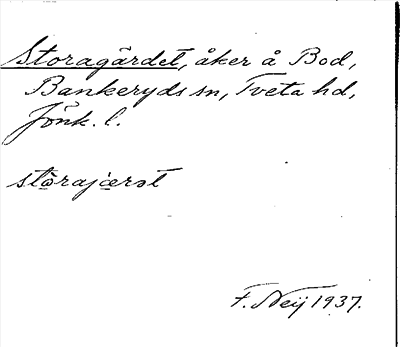 Storagärdet, åker å Bod,
Bankeryds sn, Tveta hd,
Jönk. l.
stòrajærət
F. Neij 1937.